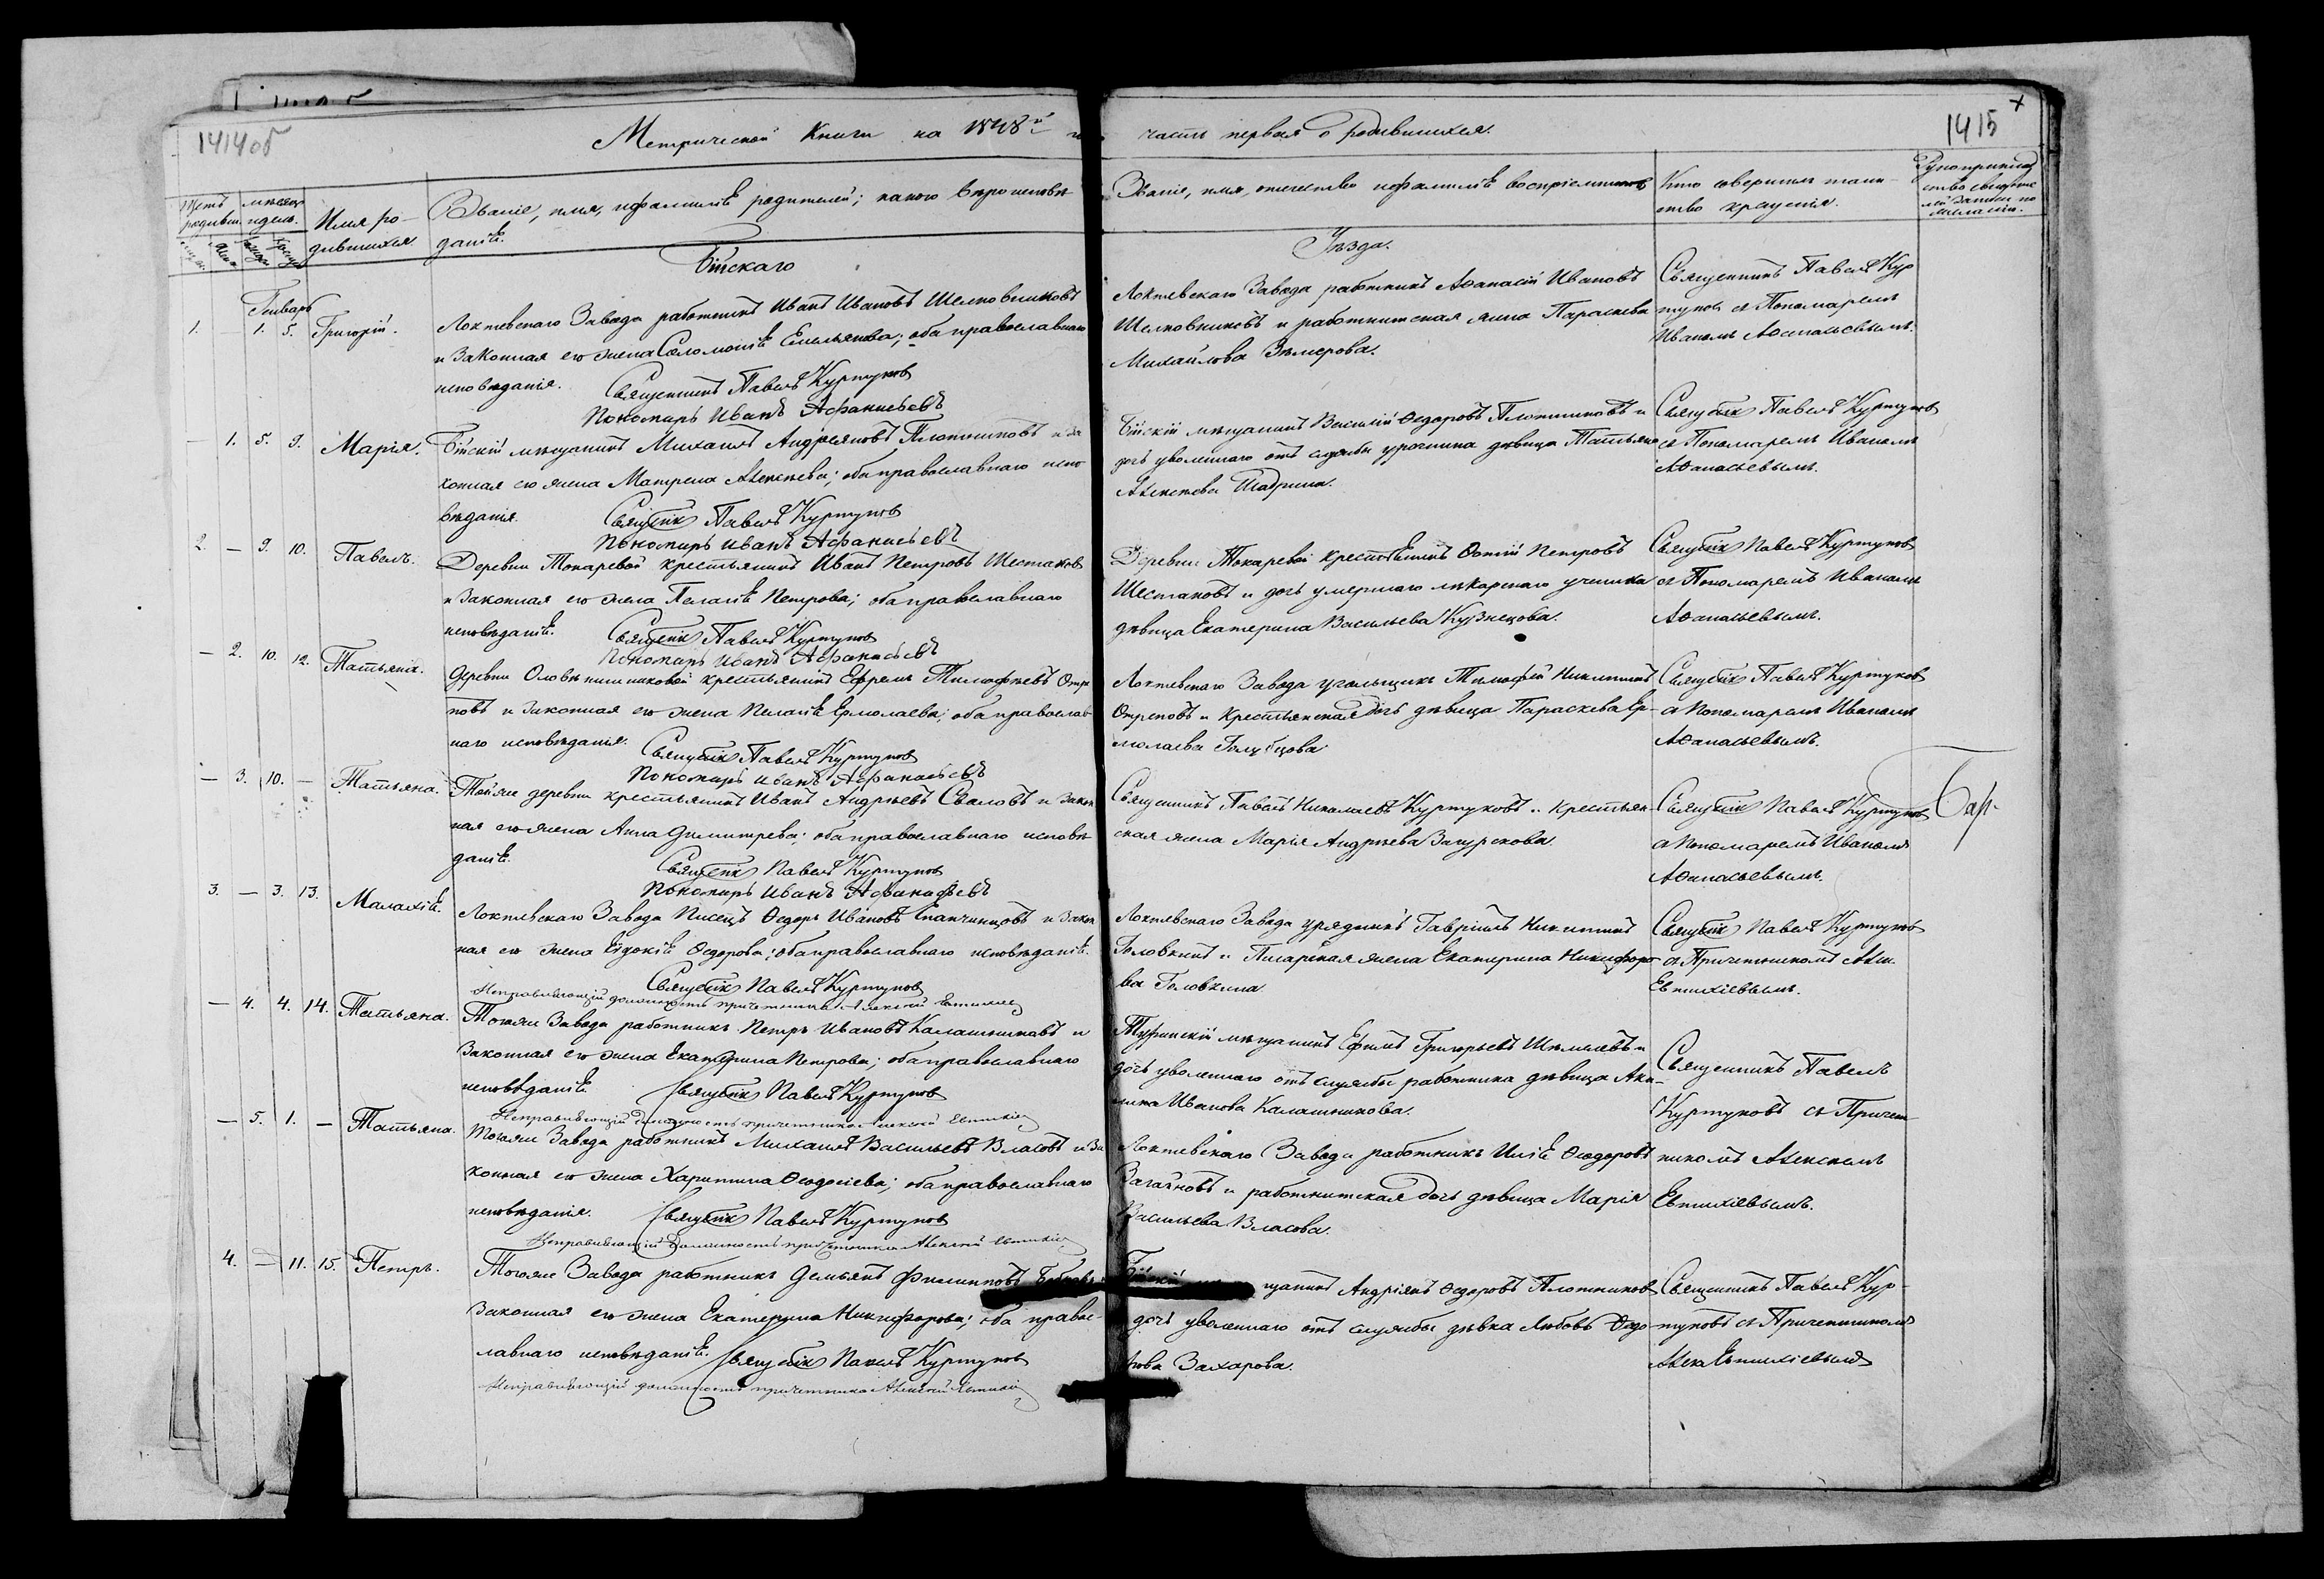 1414 об
Метрической Книги на 1848й
часть первая о родившихся.
1415
Имя ро-
дившихся
Званіе, имя, и фамилія родителей; какого вѣроисповѣ-
данія.
Званіе, имя, отечество и фамилія воспріемниковъ
Кто совершилъ таин-
ство крещенія.
Рукоприклад
ство свидѣте
лей записи по
желанію.
Бійскаго
Уѣзда.
Генварь
1. — 1. 5. Григорій.
Локтевскаго Завода работникъ Иванъ Ивановъ Шелковниковъ
и законная его жена Соломонія Емельянова; оба православнаго
исповѣданія.
Священникъ Павелъ Куртуковъ
Пономарь Иванъ Афанасьевъ
Локтевскаго Завода работникъ Аѳанасій Ивановъ
Шелковниковъ и работнитская жена Параскева
Михайлова
Священникъ Павелъ Кур
туковъ съ Пономаремъ
Иваномъ Аѳанасьевымъ.
— 1. 5. 9. Марія.
Бійскій мѣщанинъ Михаилъ Андрѣяновъ Плотниковъ и за
конная его жена Матрена Алексѣева; оба православнаго испо
вѣданія.
Священникъ Павелъ Куртуковъ
Пономарь Иванъ Афанасьевъ
Бійскій мѣщанинъ Василій Ѳедоровъ Плотниковъ и
дочь уволеннаго отъ службы урочника дѣвица Татьяна
Алексѣева Шадрина.
Священникъ Павелъ Куртуковъ
съ Пономаремъ Иваномъ
Аѳанасьевымъ.
2. — 9. 10. Павелъ.
Деревни Токаревой крестьянинъ Иванъ Петровъ Шестаковъ
и законная его жена Пелагія Петрова; оба православнаго
исповѣданія.
Священникъ Павелъ Куртуковъ
Пономарь Иванъ Афанасьевъ
Деревни Токаревой крестьянинъ Фотій Петровъ
Шестаковъ и дочь умершаго лѣкарскаго ученика
дѣвица Екатерина Васильева Кузнецова.
Священникъ Павелъ Куртуковъ
съ Пономаремъ Иваномъ
Аѳанасьевымъ.
— 2. 10. 12. Татьяна.
Деревни Оловѣнишниковой крестьянинъ Ефремъ Тимофѣевъ Отре
повъ и законная его жена Пелагія Ермолаева; оба православ
наго исповѣданія.
Священникъ Павелъ Куртуковъ
Пономарь Иванъ Афанасьевъ
Локтевскаго Завода угольщикъ Тимофей Никитинъ
Отреповъ и Крестьянская дочь дѣвица Параскева Ер-
молаева Голубцова
Священникъ Павелъ Куртуковъ
съ Пономаремъ Иваномъ
Аѳанасьевымъ.
— 3. 10. — Татьяна.
Той же деревни крестьянинъ Иванъ Андрѣевъ Сваловъ и закон
ная его жена Анна Димитрева; оба православнаго исповѣ
данія.
Священникъ Павелъ Куртуковъ
Пономарь Иванъ Афанасьевъ
Священникъ Павелъ Николаевъ Куртуковъ и Крестьян-
ская жена Марія Андрѣева Загурскова.
Священникъ Павелъ Куртуковъ
съ Пономаремъ Иваномъ
Аѳанасьевымъ.
3. — 3. 13. Малахія.
Локтевскаго Завода Писецъ Ѳедоръ Ивановъ и закон
ная его жена Евдокія Ѳедорова; оба православнаго исповѣданія.
Священникъ Павелъ Куртуковъ
Исправляющій должность причетника Алексѣй
Локтевскаго Завода урядникъ Гавріилъ Никитинъ
Головкинъ и Писарская жена Екатерина Никифоро
ва Головкина
Священникъ Павелъ Куртуковъ
съ Причетникомъ Алек.
Евтихіевымъ.
— 4. 4. 14. Татьяна.
Тогоже Завода работникъ Петръ Ивановъ Калашниковъ и
законная его жена Екатерина Петрова; оба православнаго
исповѣданія.
Священникъ Павелъ Куртуковъ
Исправляющій должность причетника Алексѣй
мѣщанинъ Ефимъ Григорьевъ и
дочь уволеннаго отъ службы работника дѣвица Аки-
лина Иванова Калашникова.
Священникъ Павелъ
Куртуковъ съ Причет
— 5. 1. — Татьяна.
Тогоже Завода работникъ Михаилъ Васильевъ Власовъ и за
конная его жена Харитина Ѳеодосіева; оба православнаго
исповѣданія.
Священникъ Павелъ Куртуковъ
Исправляющій должность причетника Алексѣй
Локтевскаго Завода работникъ Илія Ѳеодоровъ
Загайновъ и работнитская дочь дѣвица Марія
Васильева Власова.
никомъ Алексѣемъ
Евтихіевымъ.
4. — 11. 15. Петръ.
Тогоже Завода работникъ Демьянъ Филипповъ
законная его жена Екатерина Никифорова; оба право-
славнаго исповѣданія.
Священникъ Павелъ Куртуковъ
Исправляющій должность причетника Алексѣй
щанинъ Андріянъ Ѳедоровъ Плотниковъ
дочь уволеннаго отъ службы дѣвка Любовь Ѳедо-
рова Захарова.
Священникъ Павелъ Кур-
туковъ съ Причетникомъ
Алек. Евтихіевымъ